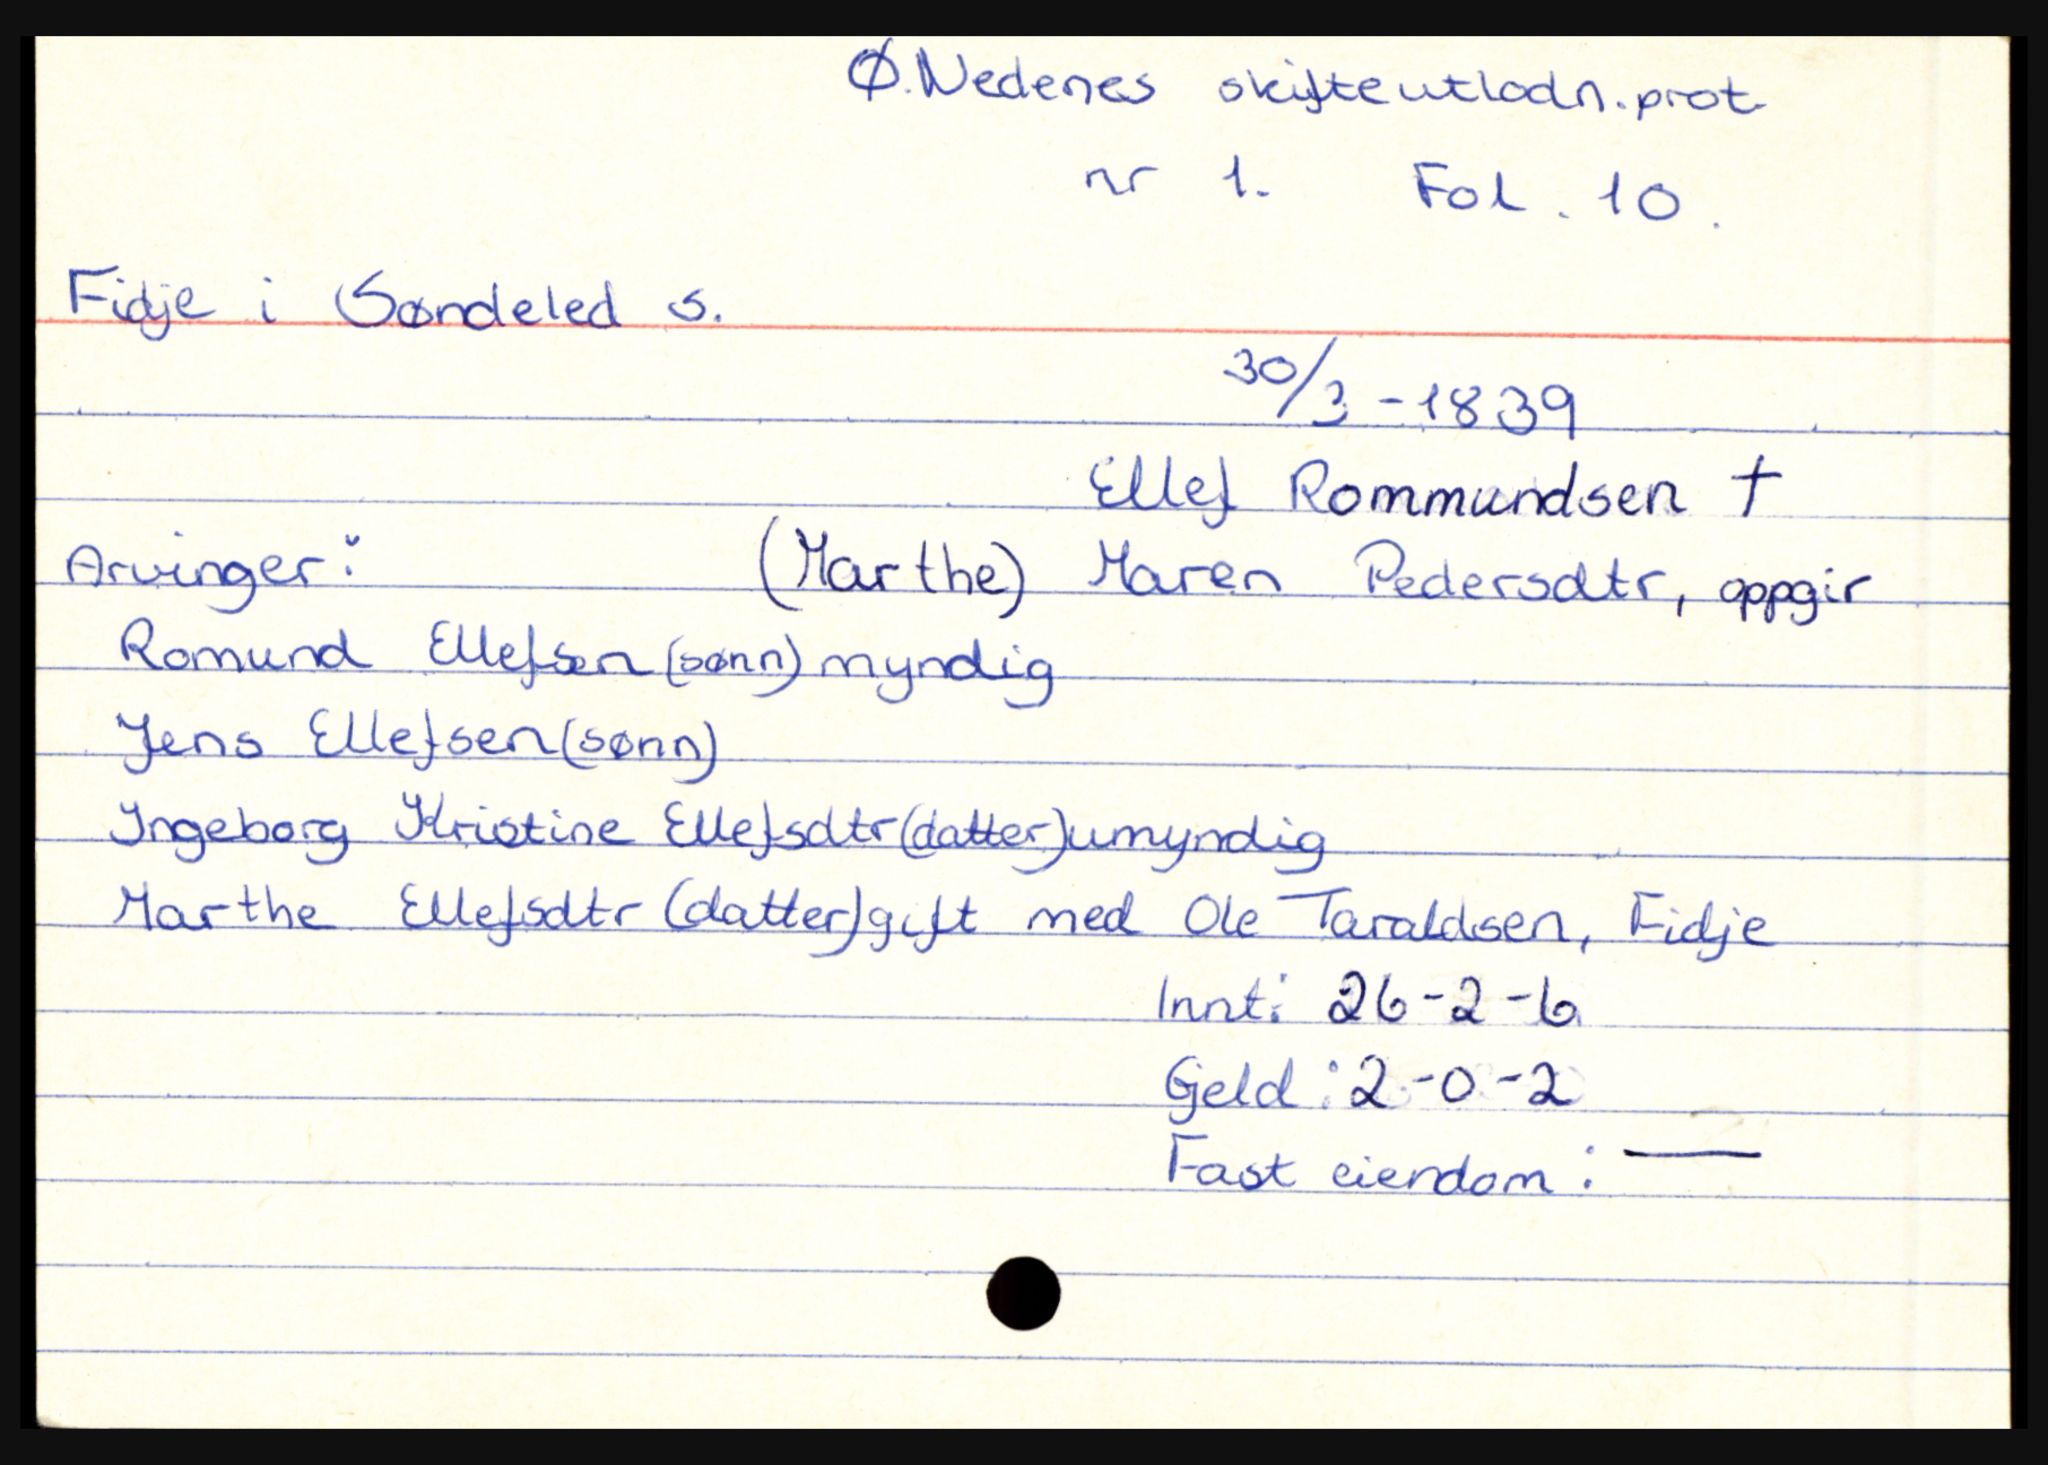 Ø. Nedenes skifteutlodn. prot.
nr 1. Fol. 10.
Fidje i Søndeled s.
30/3 - 1839
Ellef Rommundsen †
Arvinger: (Marthe) Maren Pedersdtr, oppgir
Romund Ellefsen (sønn) myndig
Jens Ellefsen (sønn)
Ingeborg Kristine Ellefsdtr (datter) umyndig
Marthe Ellefsdtr (datter) gift med Ole Taraldsen, Fidje
Innt: 26-2-6
Gjeld: 2-0-2
Fast eiendom: —